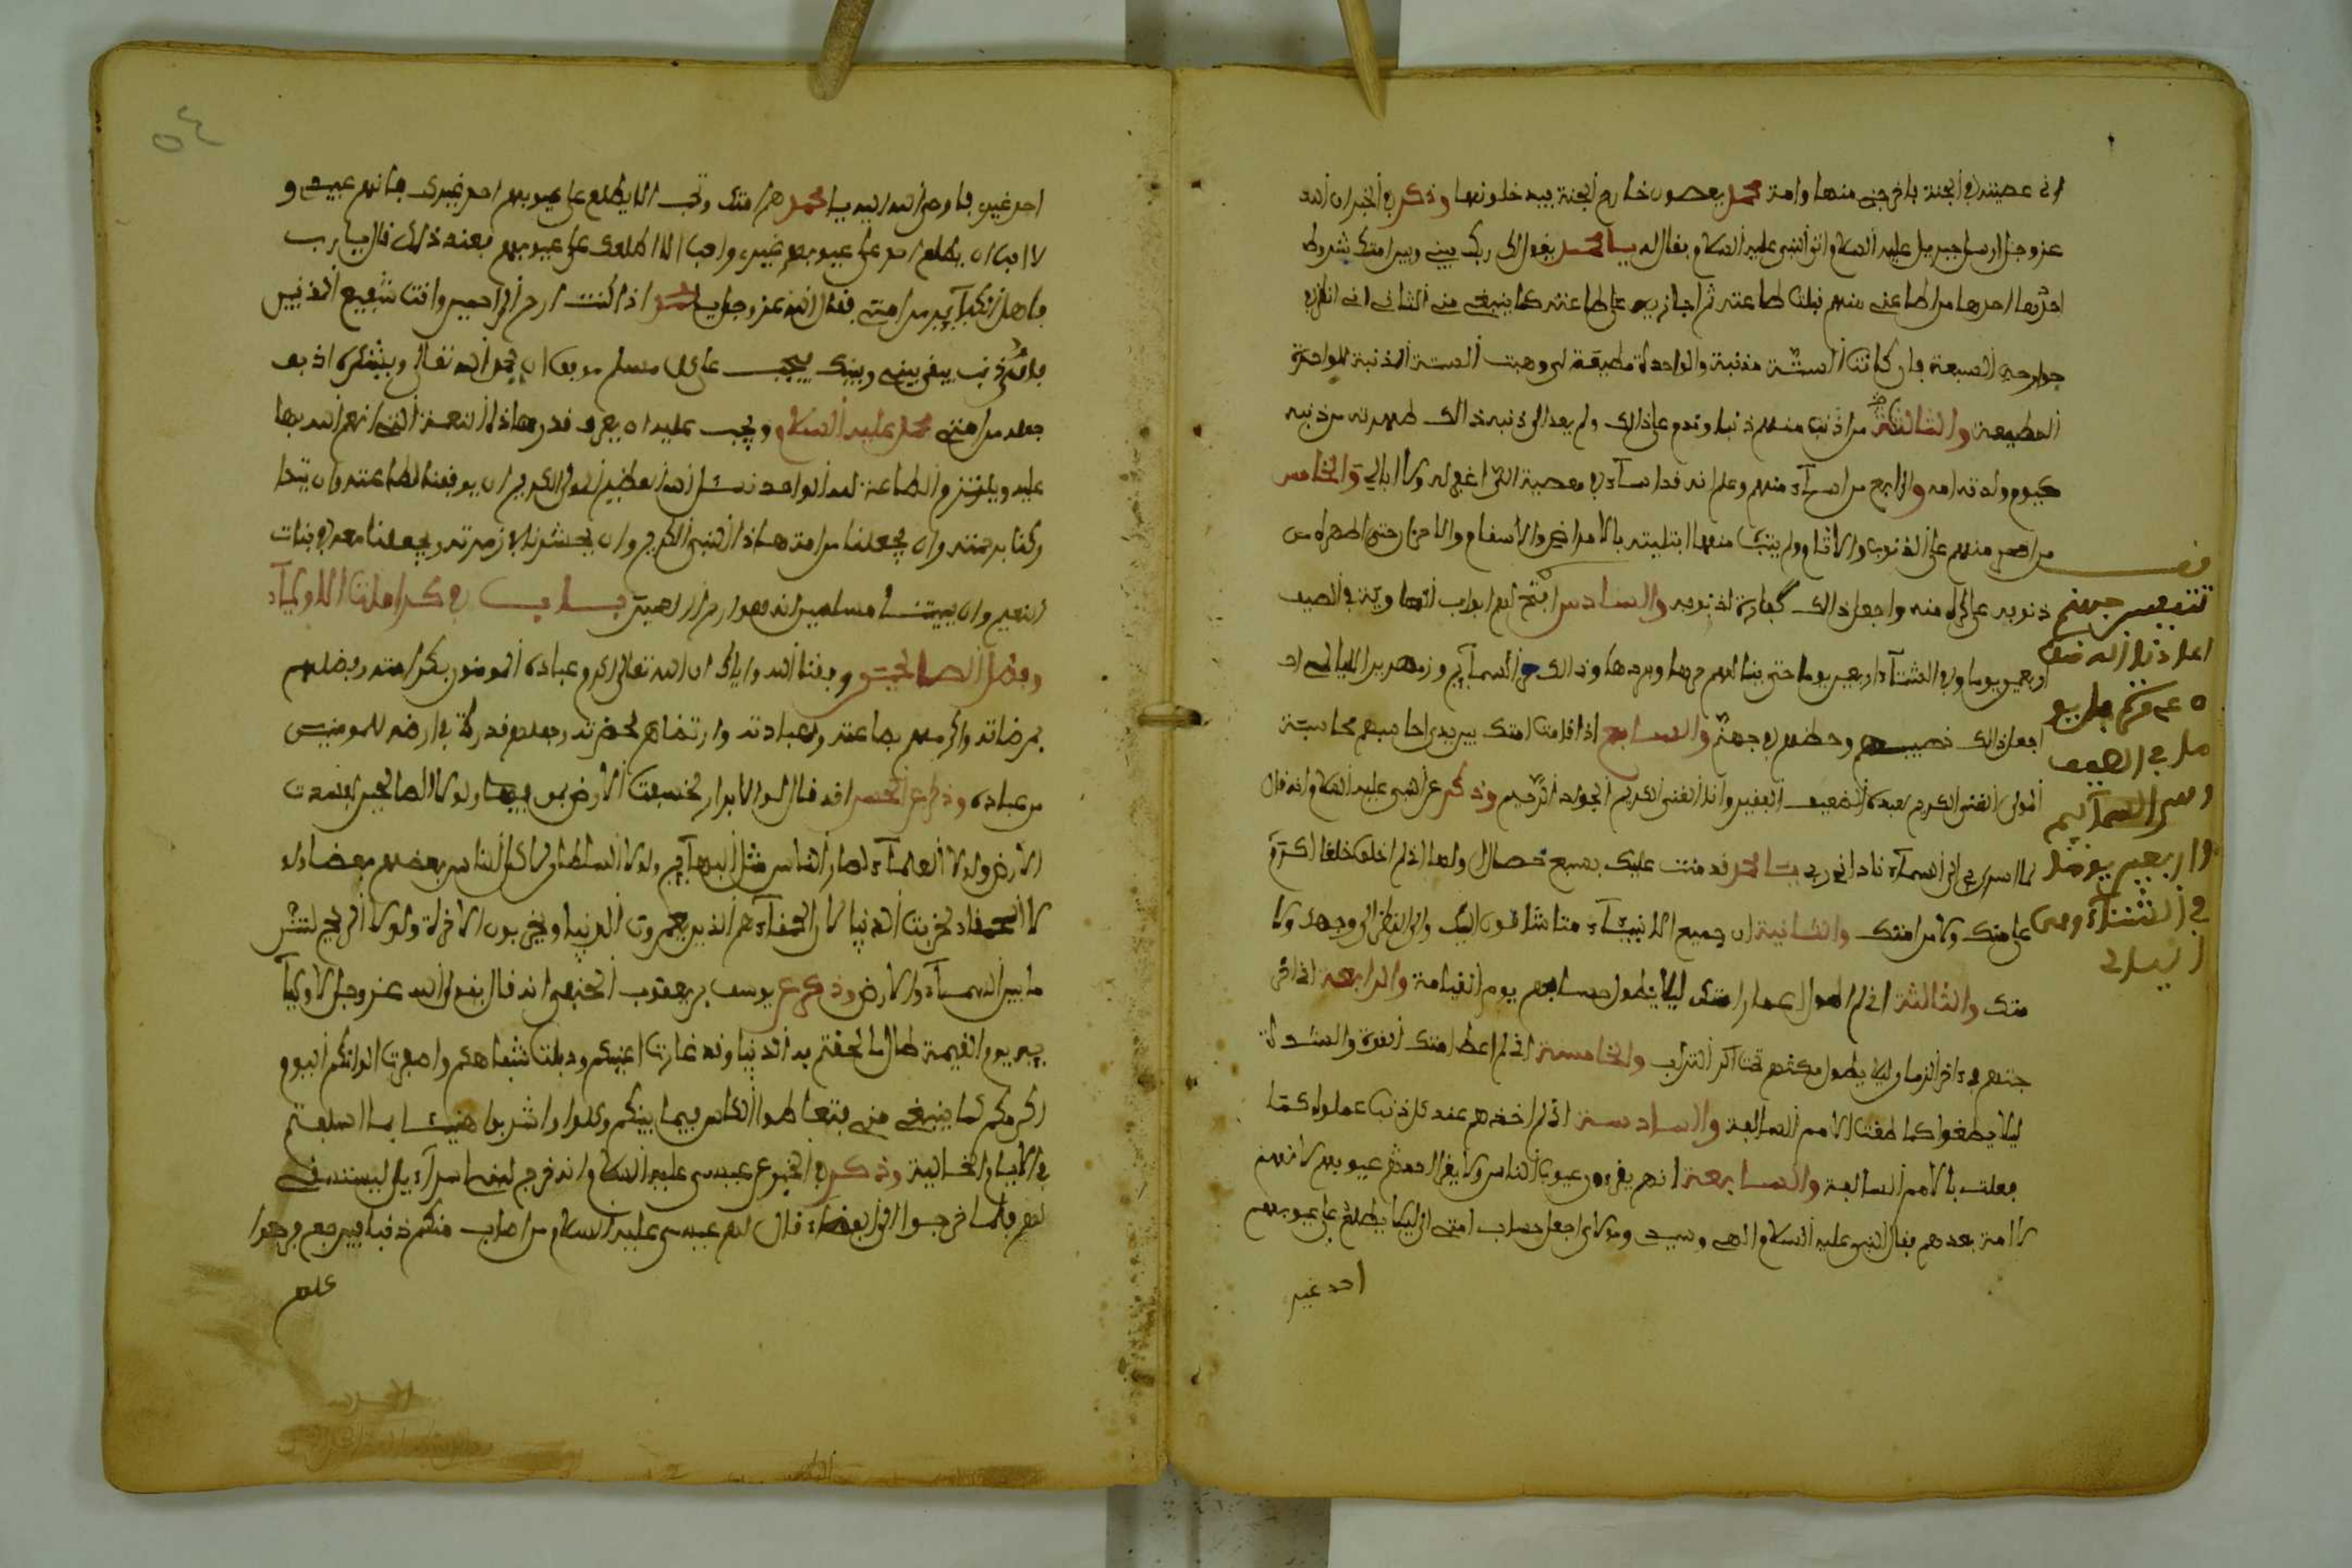 انى عصيته في الجنة فاخرجني منها وامة محمد يعصون خارج الجنة فيدخلونها وذكر في الخبر ان الله
عز وجل ارسل جبريل عليه السلام الى النبي عليه السلام فقال له يا محمد يقول لك ربك بيني وبين امتك شروط
احدها من اطاعني منهم قبلت طاعته ثم اجازيه على طاعته كما ينبغي مني الثاني انى انظر في
جوارحه السبعة فان كانت الستة مذنبة والواحدة مطيعة لي وهبت الستة المذنبة للواحدة
المطيعة والثالثة من اذنب منهم ذنبا وندم على ذالك ولم يعد الى ذنبه ذالك طهرته من ذنبه
كيوم ولدته امه والرابع من اساء منهم وعلم انه قد اساء في معصية الله اغفر له ولا ابالي والخامس
من اصر منهم على الذنوب والاثام ولم يتب منها ابتليته بالامراض والاسقام والاحزان حتى اطهره من
ذنوبه على كره منه واجعل ذالك كفارة لذنوبه والسادس افتح لهم ابواب في الصيف
اربعين يوما وفي الشتاء اربعين يوما حتى ينالهم حرها وبردها وذالك من السمائم وزمهرير الليالي
اجعل ذالك نصيبهم وحظهم في جهنم والسابع اذا قامت امتك بين يدي احاسبهم محاسبة
المولى الغني الكريم لعبده الضعيف الفقير وانا الغني الكريم الجواد الرحيم وذكر عن النبي عليه السلام انه قال
لما اسري بي الى السماء ناداني ربي يا محمد قد مننت عليك بسبع خصال اولها اني لم اخلق خلقا اكرم
علي منك ولا من امتك والثانية ان جميع الانبياء مشتاقون اليك والى النظر الى وجهك ولا
متك والثالثة اني لم اطول اعمار امتك ليلا يطول حسابهم يوم القيامة والرابعة اني اخر
جتهم في ءاخر الزمان ليلا يطول مكثهم تحت التراب والخامسة اني لم اعط امتك القوة والشدة
ليلا يطغوا كما طغت الامم السالفة والسادسة اني لم اخذهم عند كل ذنب عملوه كما
فعلت بالامم السالفة والسابعة انهم يقرءون عيوب الناس ولا يقرا احد عيوبهم لانهم
لا امة بعدهم فقال النبي عليه السلام الهي وسيدي ومولاي اجعل حساب امتي الي ليلا يطلع على عيوبهم
احد غير
تنفيس جهنم
اعاذنا الله منها
في الصيف
وهي السمائم
واربعين يوما
في الشتاء وهي
اليالي
٥٤
احد غيري فاوحى الله اليه يا محمد هم امتك وتحب الا يطلع على عيوبهم احد غيرك فانهم عبيدي و
لا احب ان يطلع احد على عيوبهم غيري واحب الا اطلعك على عيوبهم فعند ذلك قال يا رب
ما اهل الكبائر من امتي فقال الله عز وجل يا محمد اذا كنت ارحم الراحمين وانت شفيع المذنبين
فاي ذنب يبقى بيني وبينك يجب على كل مسلم موفق ان يحمد الله تعالى ويشكره اذ بعد
جعله من امتي محمد عليه السلام ويجب عليه ان يعرف قدر هاذه النعمة التي انعم الله بها
عليه ويلتزم الطاعة لله الواحد نسئل الله العظيم المولى الكريم ان يوفقنا لطاعته وان يتدا
ركنا برحمته وان يجعلنا من امة هاذا النبي الكريم وان يحشرنا في زمرته ويجعلنا معه في جنات
النعيم وان يميتنا مسلمين انه هو ارحم الراحمين باب في كرامات الاولياء
وفضل الصالحين وفقنا الله واياك ان الله تعالى اكرم عباده المومنين بكرامته وفضلهم
بمرضاته واكرمهم بطاعته وبعبادته وارتضاهم لحضرته وجعلهم قدوة في ارضه للمومنين
من عباده وذكر عن الحسن انه قال لولا الابرار لخسفت الارض بمن فيها ولولا الصالحين لفسدت
الارض ولولا العلماء لصار الناس مثل البهائم ولولا السلطان لاكل الناس بعضهم بعضا ولو
لا الحمقاء لخربت الدنيا لان الحمقاء هم الذين يعمرون الدنيا ويخربون الاخرة ولولا الريح لنتن
ما بين السماء والارض وذكر عن يوسف بن يعقوب الحنفي انه قال يقول الله عز وجل لاوليا
يه يوم القيمة طال ما لحقتم به في الدنيا وقد غارت اعينكم وذبلت شفاهكم واصفرت الوانكم اليوم
اكرمكم كما ينبغي مني فتعاطوا الكاس فيما بينكم وكلوا واشربوا هنيئا بما اسلفتم
في الايام الخالية وذكر في الخبر عن عيسى عليه السلام انه خرج لبني اسراءيل ليستسقي
لهم فلما خرجوا الى قال لهم عيسى عليه السلام من اصاب منكم ذنبا فليرجع فرجعوا
كلهم